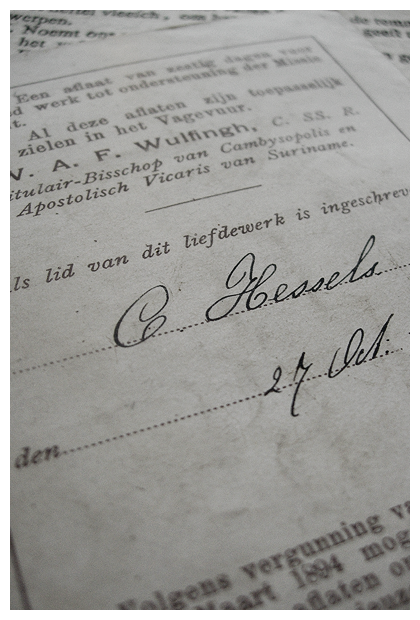 werpen.
Noemt om
het
Een aflaat van zestig dagen voor
d werk tot ondersteuning der Missie
t.
Al deze aflaten zijn toepasselijk
zielen in het Vagevuur.
W. A. F. Wulfingh, C. SS. R.
itulair-Bisschop van Cambysopolis en
Apostolisch Vicaris van Suriname.
ls lid van dit liefdewerk is ingeschrev
C. Hessels
den 27 Oct.
Volgens vergunning va
Maart 1894 mog
aflaten o